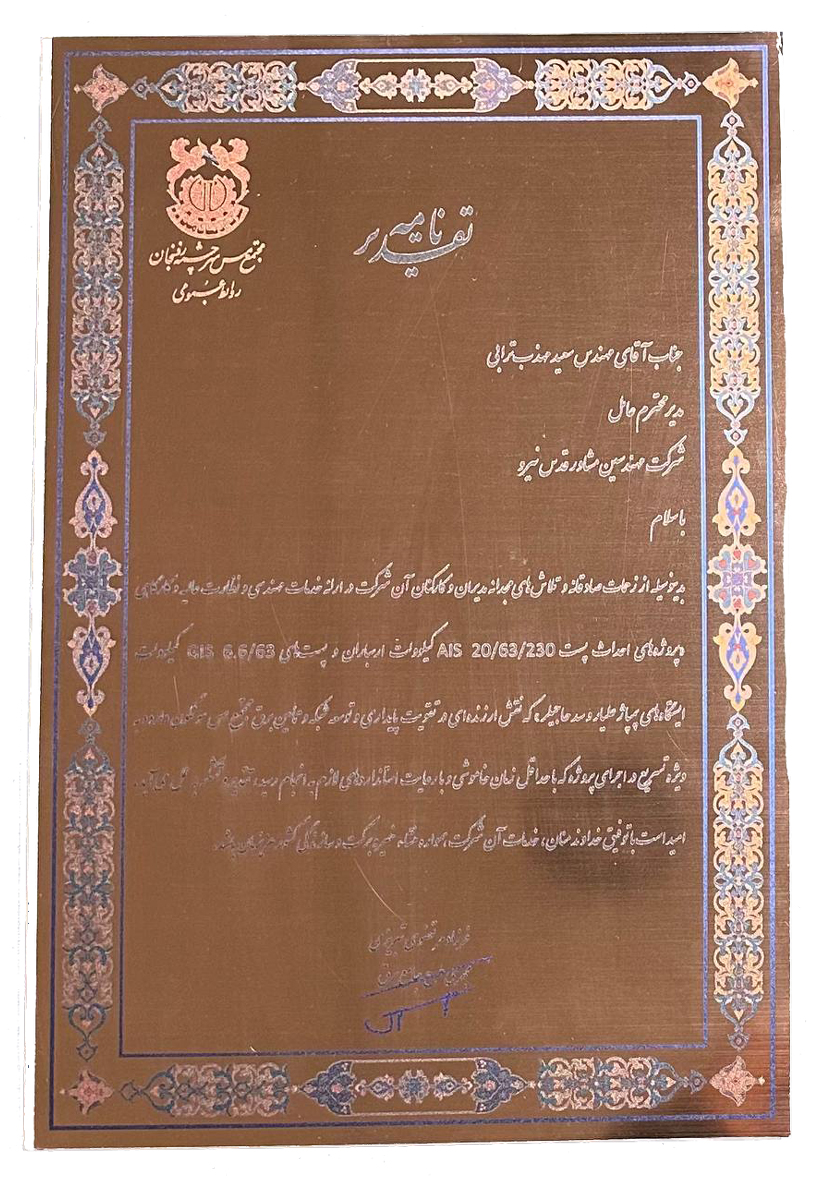 مجتمع مس سرچشمه رفسنجان
روابط عمومی
تقدیر نامه
جناب آقای مهندس سعید مهذب ترابی
مدیر محترم عامل
شرکت مهندسین مشاور قدس نیرو
با سلام
بدینوسیله از زحمات صادقانه و تلاش های مجدانه مدیران و کارکنان آن شرکت در ارائه خدمات مهندسی و نظارت عالیه و کارگاهی
پروژه های احداث پست AIS 20/63/230 کیلوولت ارسباران و پست های GIS 6.6/63 کیلوولت
ایستگاه های پمپاژ علیار و سد حاجیلر که نقش ارزنده ای در تقویت پایداری و توسعه شبکه و تامین برق مجتمع مس سونگون دارد و به
ویژه تسریع در اجرای پروژه که با حداقل زمان خاموشی و با رعایت استانداردهای لازم به انجام رسید، تقدیر و تشکر به عمل می آید.
امید است با توفیق خداوند منان، خدمات آن شرکت همواره خیر و برکت و سازندگی کشور عزیزمان باشد.